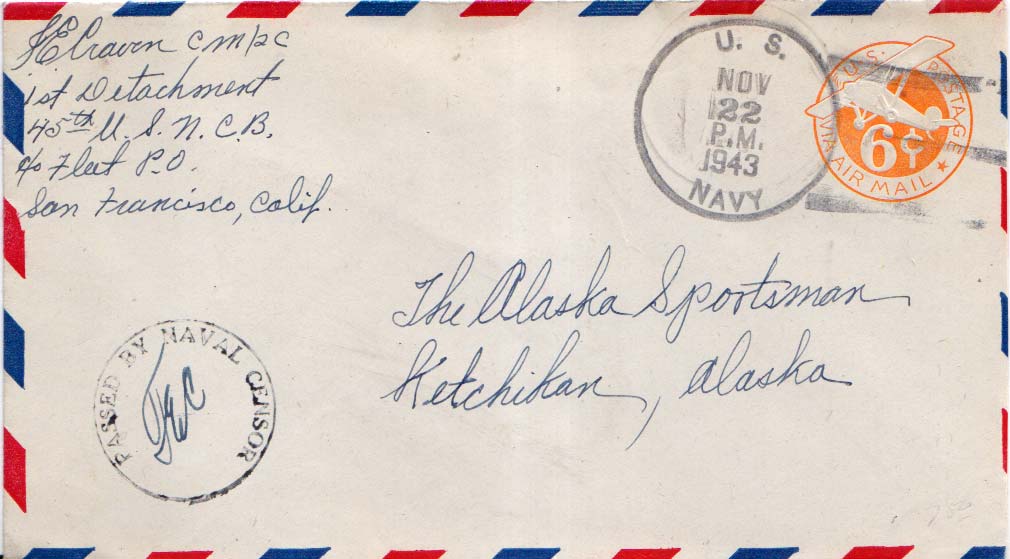 HE Craven CM/2C
1st Detachment
45th U.S.N.C.B.
c/o Fleet P.O.
San Francisco, Calif.
U. S.
NOV
22
P.M.
1943
NAVY
U.S. POSTAGE
6¢
VIA AIR MAIL
The Alaska Sportsman
Ketchikan, Alaska
PASSED BY NAVAL CENSOR